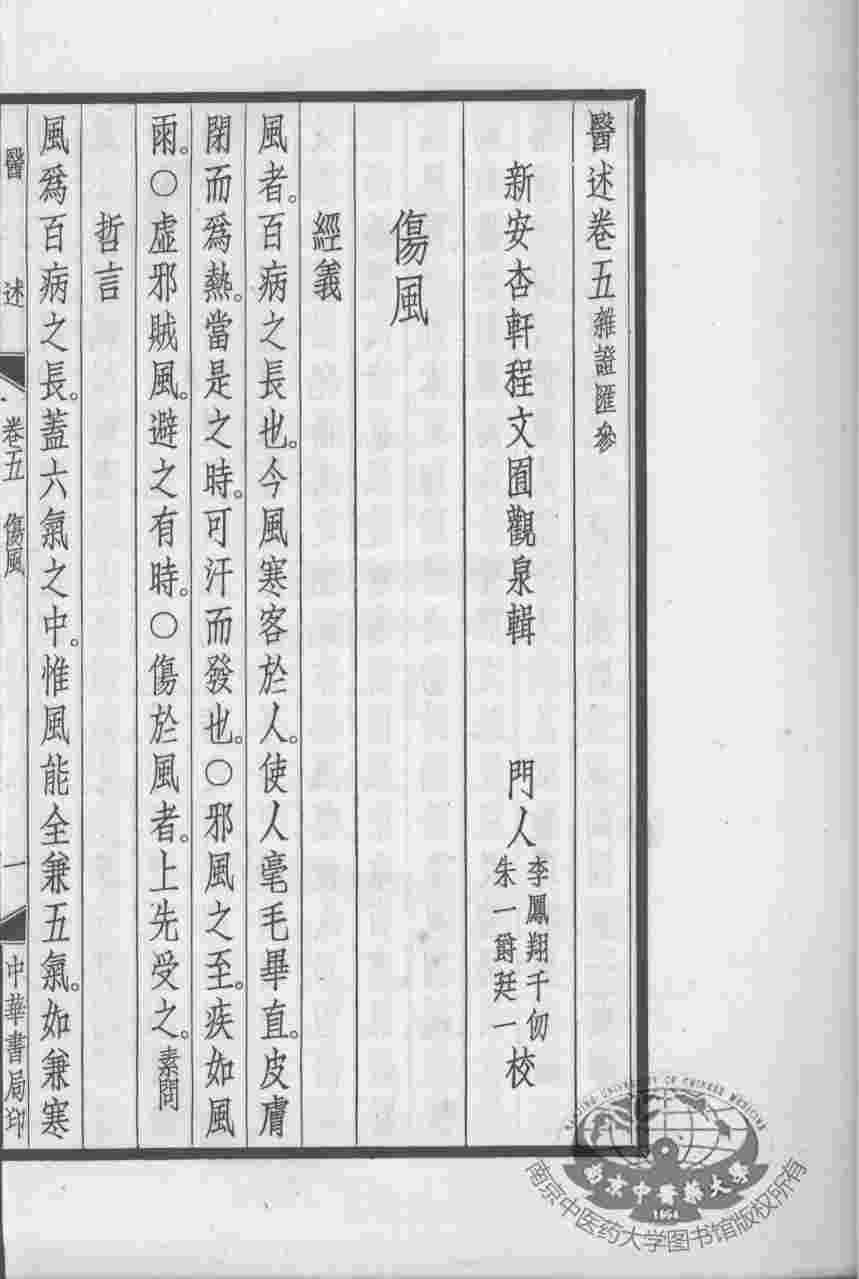 醫述卷五雜證匯參
新安杏軒程文囿觀泉輯　門人李鳳翔千仞朱一爵廷一校
傷風
經義
風者。百病之長也。今風寒客於人。使人毫毛畢直。皮膚
閉而爲熱。當是之時。可汗而發也。○邪風之至。疾如風
雨。○虛邪賊風。避之有時。○傷於風者。上先受之。素問
哲言
風爲百病之長。蓋六氣之中。惟風能全兼五氣。如兼寒
醫述　卷五　傷風　一　中華書局印
NANJING UNIVERSITY OF CHINESE MEDICINE
南京中醫藥大學
1954
南京中医药大学图书馆版权所有